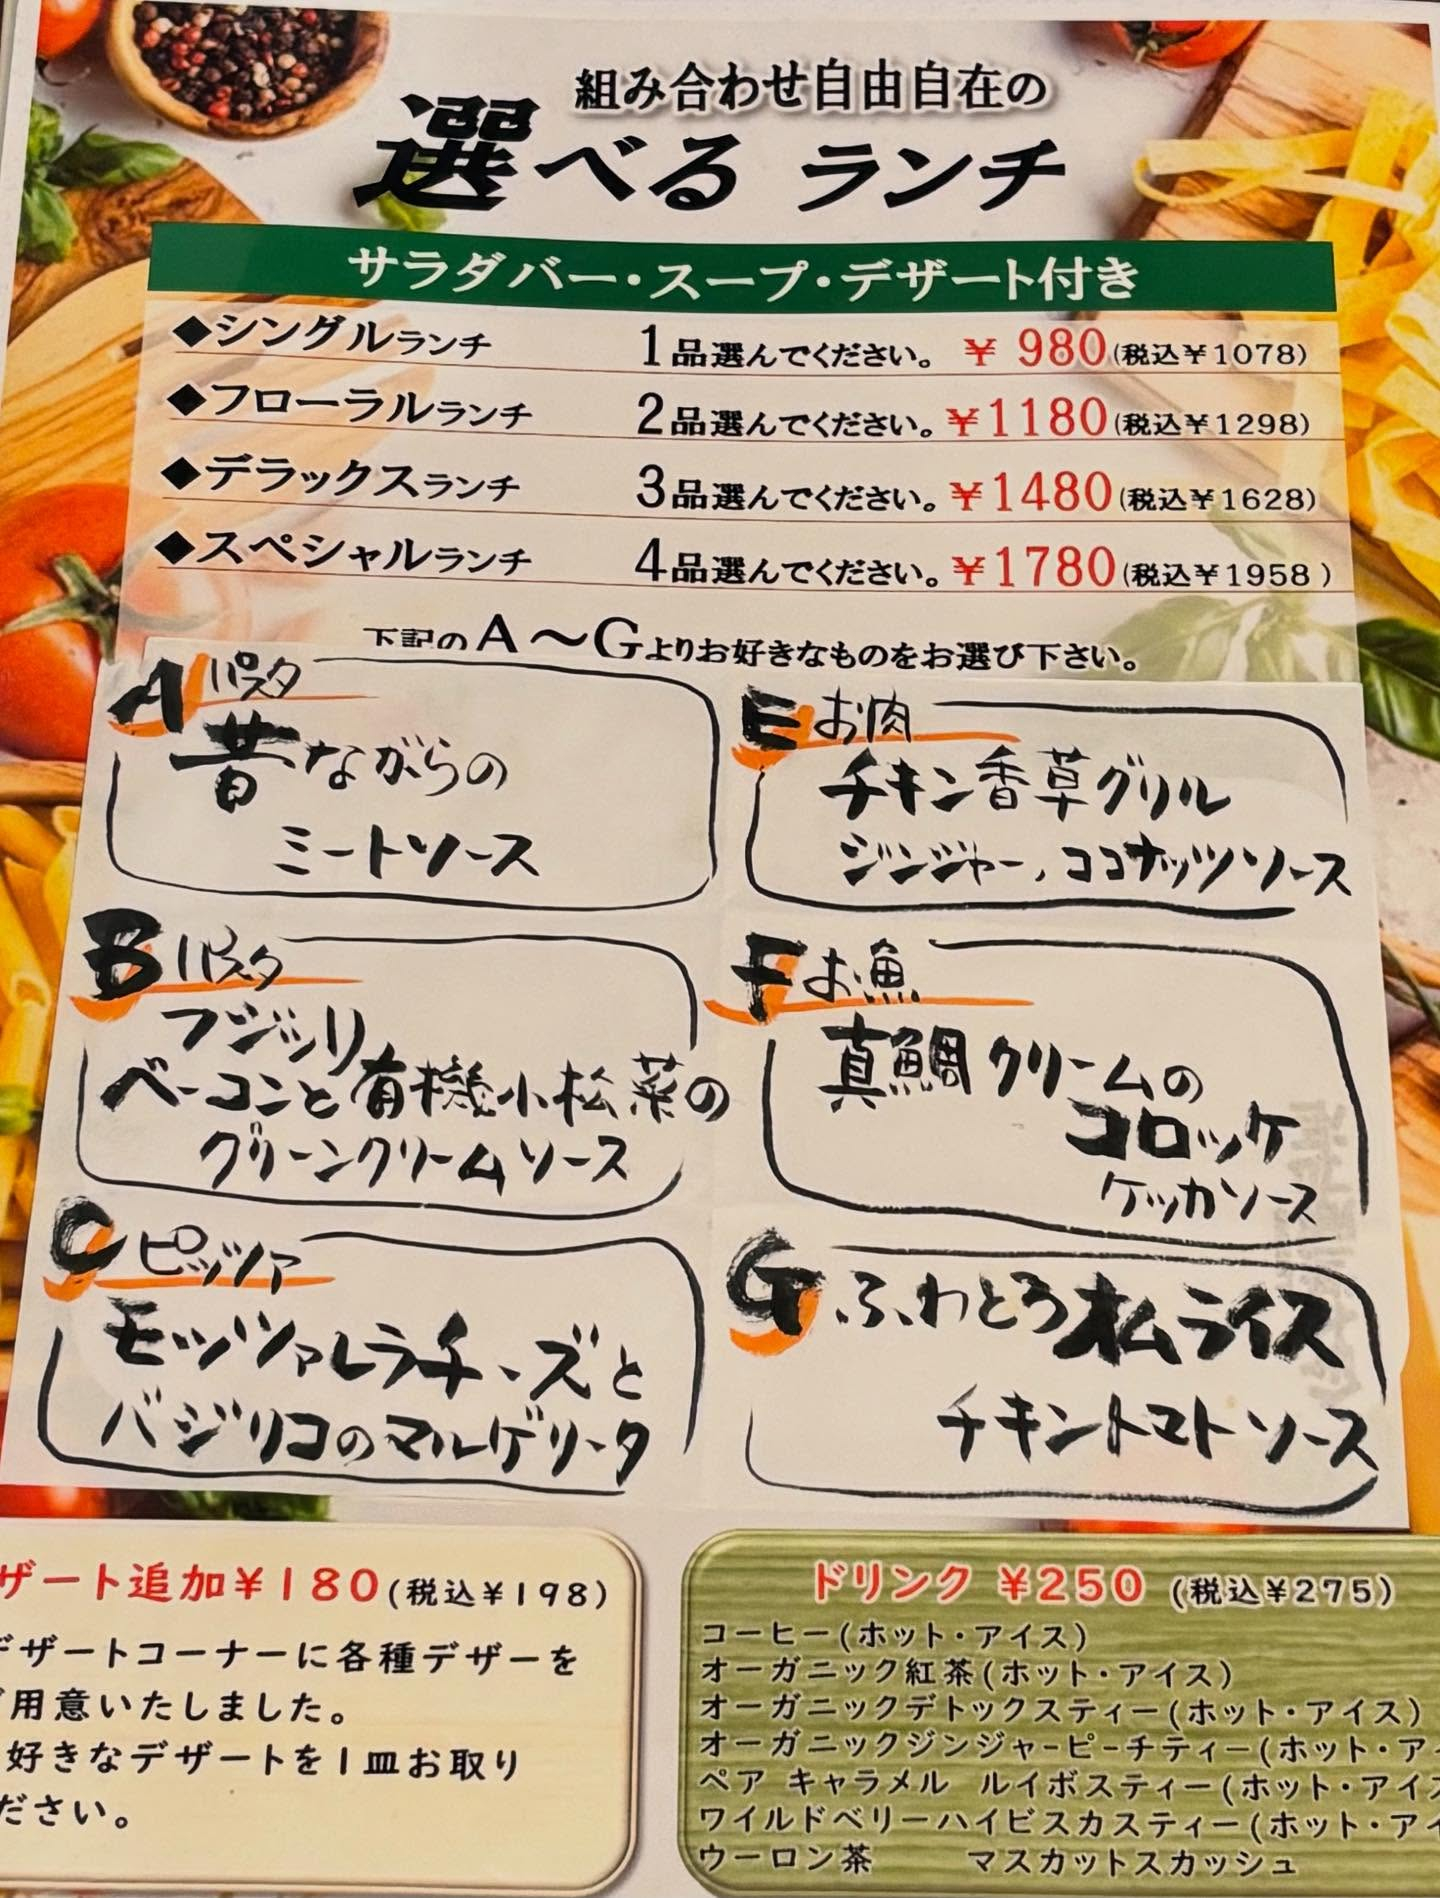 組み合わせ自由自在の
選べる ランチ
サラダバー・スープ・デザート付き
◆シングルランチ 1品選んでください。 ¥ 980(税込¥1078)
◆フローラルランチ 2品選んでください。 ¥1180(税込¥1298)
◆デラックスランチ 3品選んでください。 ¥1480(税込¥1628)
◆スペシャルランチ 4品選んでください。 ¥1780(税込¥1958 )
下記のA～Gよりお好きなものをお選び下さい。
A パスタ
昔ながらの
ミートソース
B パスタ
フジッリ
ベーコンと有機小松菜の
グリーンクリームソース
C ピッツァ
モッツァレラチーズと
バジリコのマルゲリータ
E お肉
チキン香草グリル
ジンジャー、ココナッツソース
F お魚
真鯛クリームの
コロッケ
ケッカソース
G ふわとろオムライス
チキントマトソース
ザート追加¥180(税込¥198)
デザートコーナーに各種デザーを
ご用意いたしました。
好きなデザートを1皿お取り
ださい。
ドリンク ¥250 (税込¥275)
コーヒー(ホット・アイス)
オーガニック紅茶(ホット・アイス)
オーガニックデトックスティー(ホット・アイス)
オーガニックジンジャーピーチティー(ホット・アイ
ペア キャラメル ルイボスティー(ホット・アイス
ワイルドベリーハイビスカスティー(ホット・アイ
ウーロン茶 マスカットスカッシュ